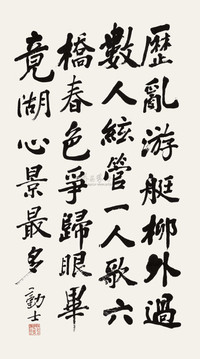 歷亂游艇柳外過
數人絃管一人歌六
橋春色爭歸眼畢
竟湖心景最多
勛士